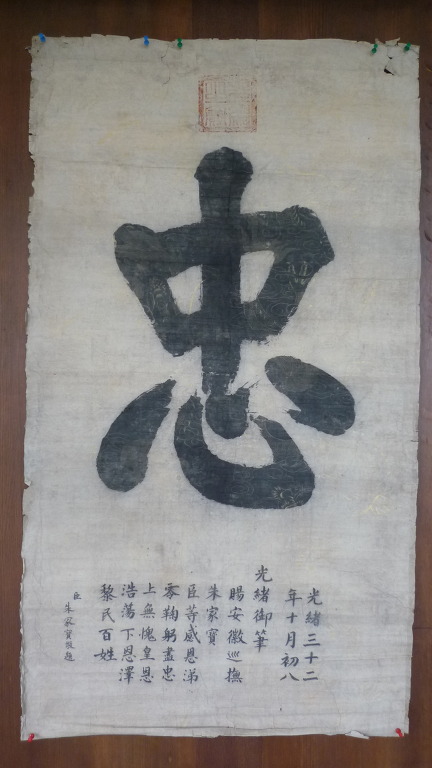 忠
光緒三十二
年十月初八
光緒御筆
賜安徽巡撫
朱家寶
臣等感恩涕
零鞠躬盡忠
上無愧皇恩
浩蕩下恩澤
黎民百姓
臣朱家寶敬題